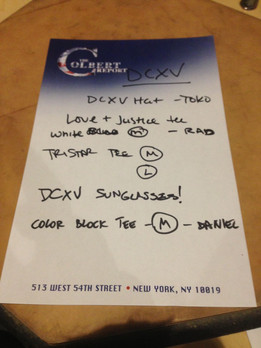 THE
COLBERT
REPORT
DCXV
DCXV HAT - TOKO
LOVE + JUSTICE TEE
WHITE M - RAD
TRISTAR TEE M
L
DCXV SUNGLASSES!
COLOR BLOCK TEE - M - DANIEL
513 WEST 54TH STREET • NEW YORK, NY 10019